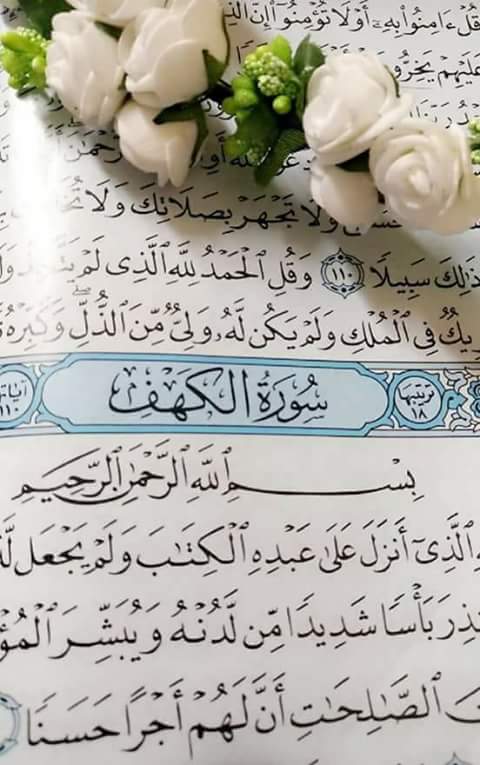 قُلْ ءَامِنُوا۟ بِهِۦٓ أَوْ لَا تُؤْمِنُوٓا۟ إِنَّ
عَلَيْهِمْ
وَلَا تَجْهَرْ بِصَلَاتِكَ وَلَا
ذَٰلِكَ سَبِيلًا ١١٠ وَقُلِ ٱلْحَمْدُ لِلَّهِ ٱلَّذِى لَمْ
فِى ٱلْمُلْكِ وَلَمْ يَكُن لَّهُۥ وَلِىٌّ مِّنَ ٱلذُّلِّ وَكَبِّرْهُ
ترتيبها ١٨ سُورَةُ الكَهْفِ آياتها ١١٠
بِسْمِ ٱللَّهِ ٱلرَّحْمَٰنِ ٱلرَّحِيمِ
ٱلَّذِىٓ أَنزَلَ عَلَىٰ عَبْدِهِ ٱلْكِتَٰبَ وَلَمْ يَجْعَل
بَأْسًا شَدِيدًا مِّن لَّدُنْهُ وَيُبَشِّرَ
ٱلصَّٰلِحَٰتِ أَنَّ لَهُمْ أَجْرًا حَسَنًا